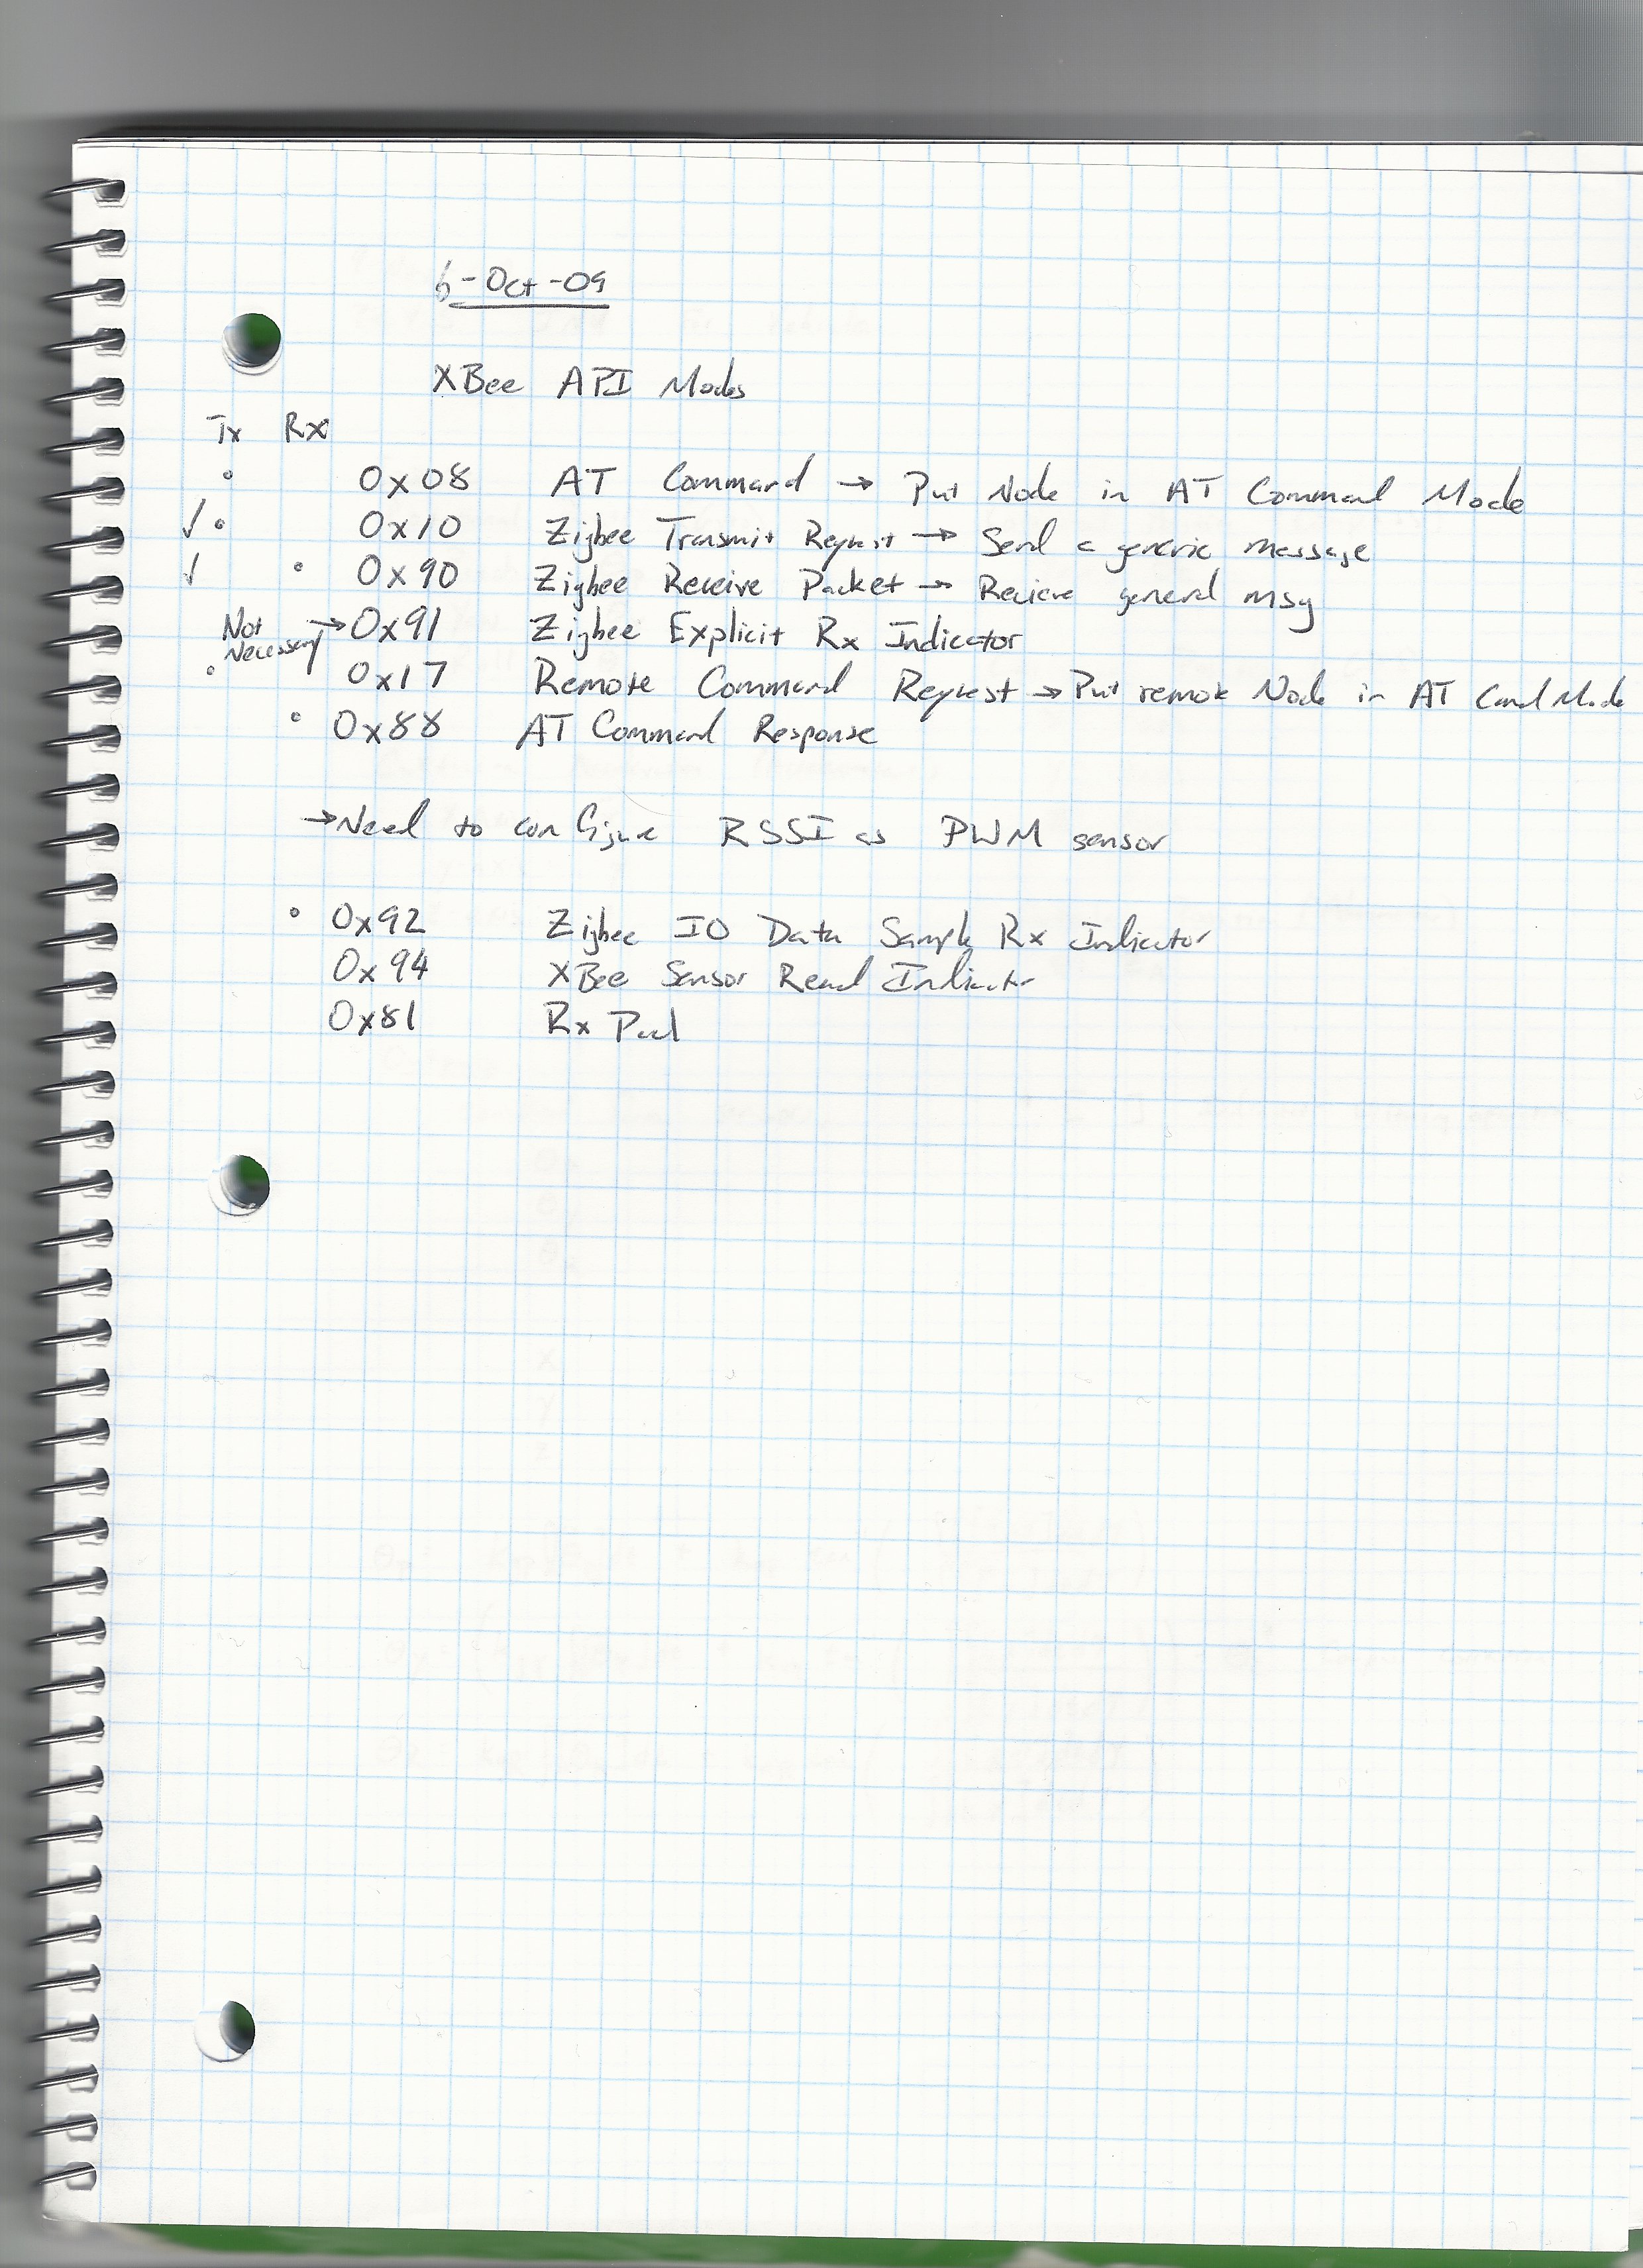 6-Oct-09
XBee API Modes
Tx Rx
° 0x08 AT Command → Put Node in AT Command Mode
✓ ° 0x10 Zigbee Transmit Request → Send a generic message
✓ ° 0x90 Zigbee Receive Packet → Recieve general msg
Not Necessary → 0x91 Zigbee Explicit Rx Indicator
° 0x17 Remote Command Request → Put remote Node in AT Cmd Mode
° 0x88 AT Command Response
→ Need to configure RSSI as PWM sensor
° 0x92 Zigbee IO Data Sample Rx Indicator
0x94 XBee Sensor Read Indicator
0x81 Rx